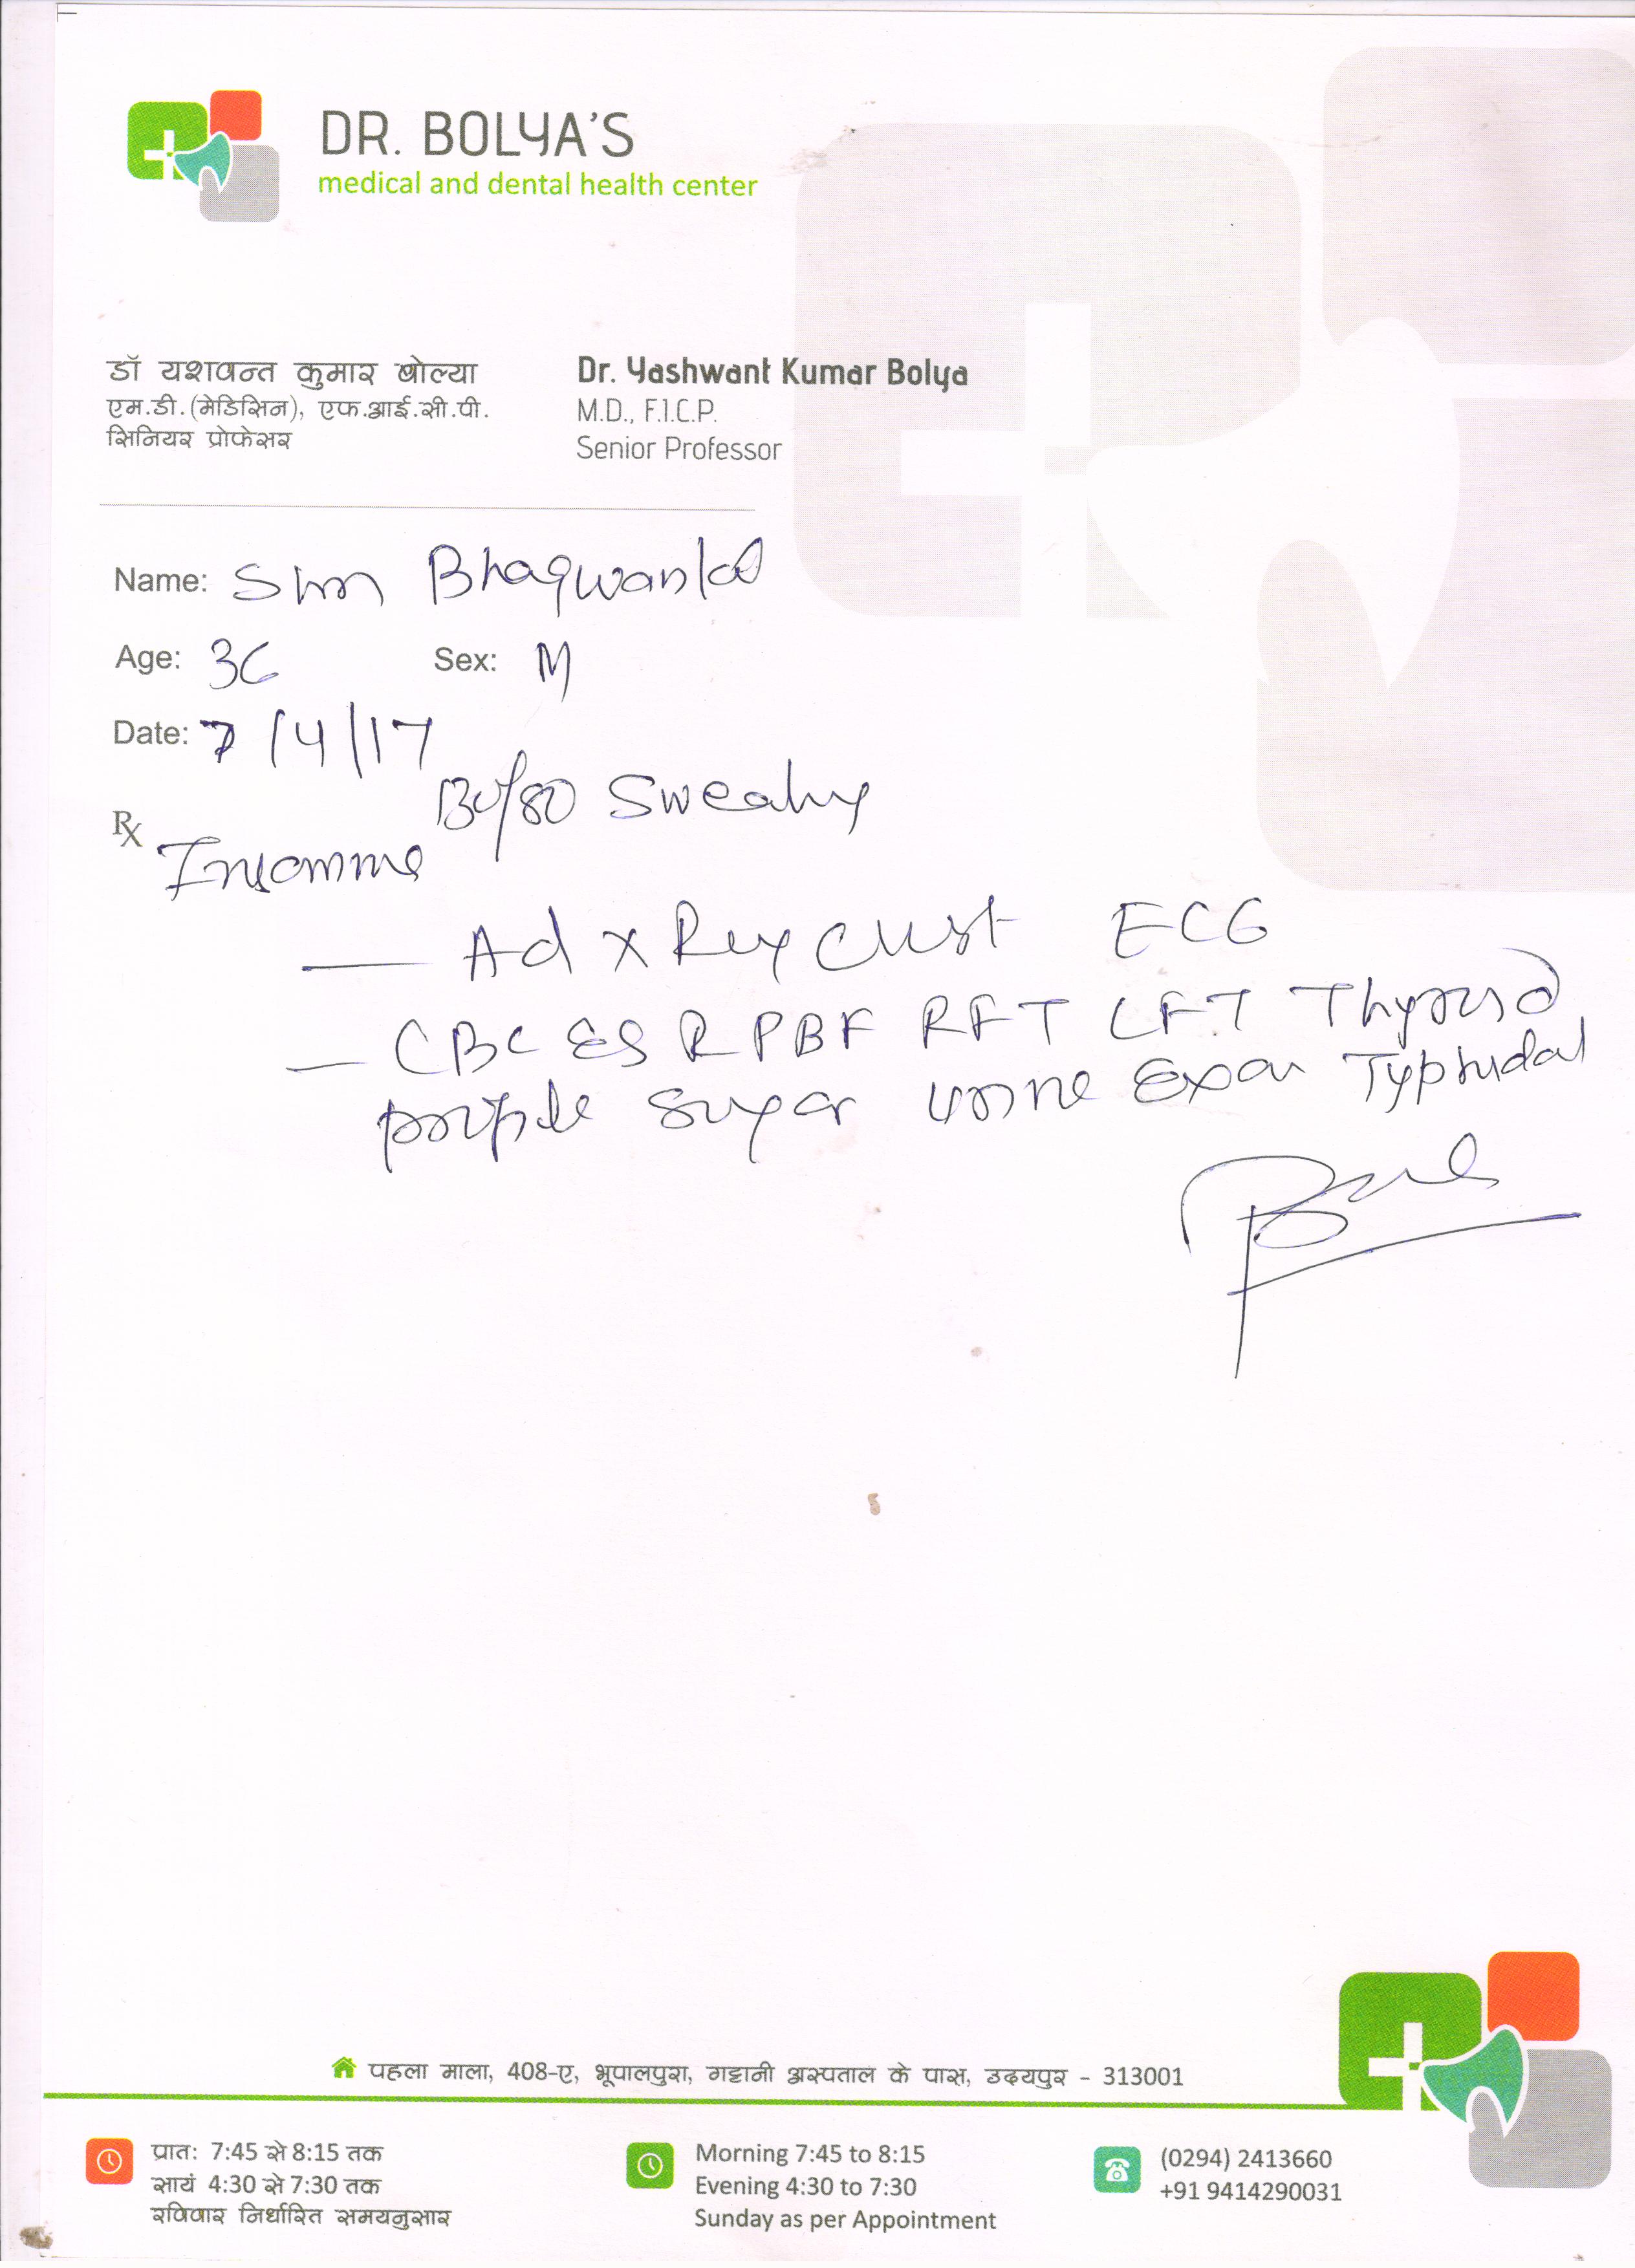 DR. BOLYA'S
medical and dental health center
डॉ यशवन्त कुमार बोल्या
एम.डी.(मेडिसिन), एफ.आई.सी.पी.
सिनियर प्रोफेसर
Dr. Yashwant Kumar Bolya
M.D., F.I.C.P.
Senior Professor
Name: Bhagwanlal
Age: 36 Sex: M
Date: 7/4/17
Rx 130/80 Sweating
Insomnia
— Ad X Ray Chest ECG
— CBC ESR PBF RFT LFT Thyroid
profile Sugar Urine Exam Typhidot
पहला माला, 408-ए, भूपालपुरा, गट्टानी अस्पताल के पास, उदयपुर - 313001
प्रात: 7:45 से 8:15 तक
सायं 4:30 से 7:30 तक
रविवार निर्धारित समयनुसार
Morning 7:45 to 8:15
Evening 4:30 to 7:30
Sunday as per Appointment
(0294) 2413660
+91 9414290031